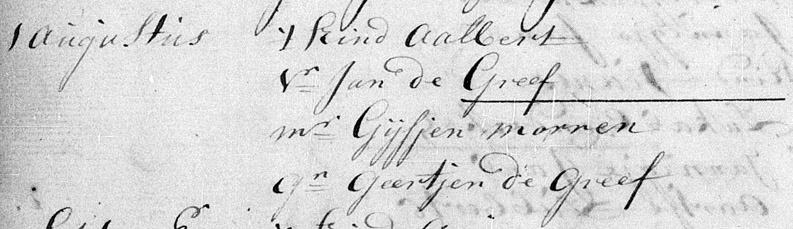 1 Augustus 't kind Aalbert
vr Jan de Greef
mr Gijsjen morren
gn Geertjen de Greef
't kind